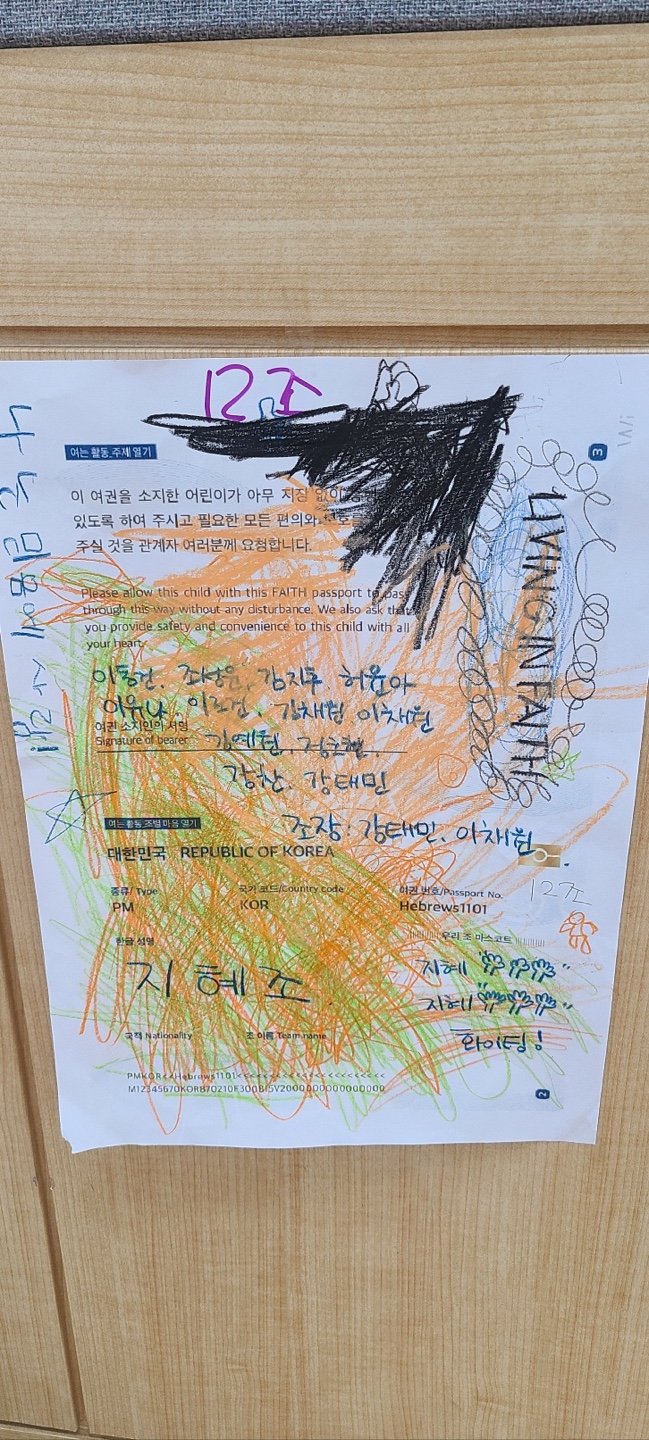 12조
여는 활동 주제 열기
이 여권을 소지한 어린이가 아무 지장 없이
있도록 하여 주시고 필요한 모든 편의와 보호를
주실 것을 관계자 여러분께 요청합니다.
Please allow this child with this FAITH passport to pass
through this way without any disturbance. We also ask that
you provide safety and convenience to this child with all
your heart.
김지후, 허윤아
이유나 이채원
여권 소지인의 서명
Signature of bearer
강찬, 강태민
조장: 강태민, 이채원
여는 활동 조별 마음 열기
대한민국 REPUBLIC OF KOREA
종류/ Type
국가 코드/Country code
여권 번호/Passport No.
PM
KOR
Hebrews1101
12조
한글 성명
우리 조 마스코트
지혜조
지혜
지혜
화이팅!
국적 Nationality
조 이름 Team name
PMKOR<<Hebrews1101<<<<<<<<<<
2
3
LIVING IN FAITH
Wi